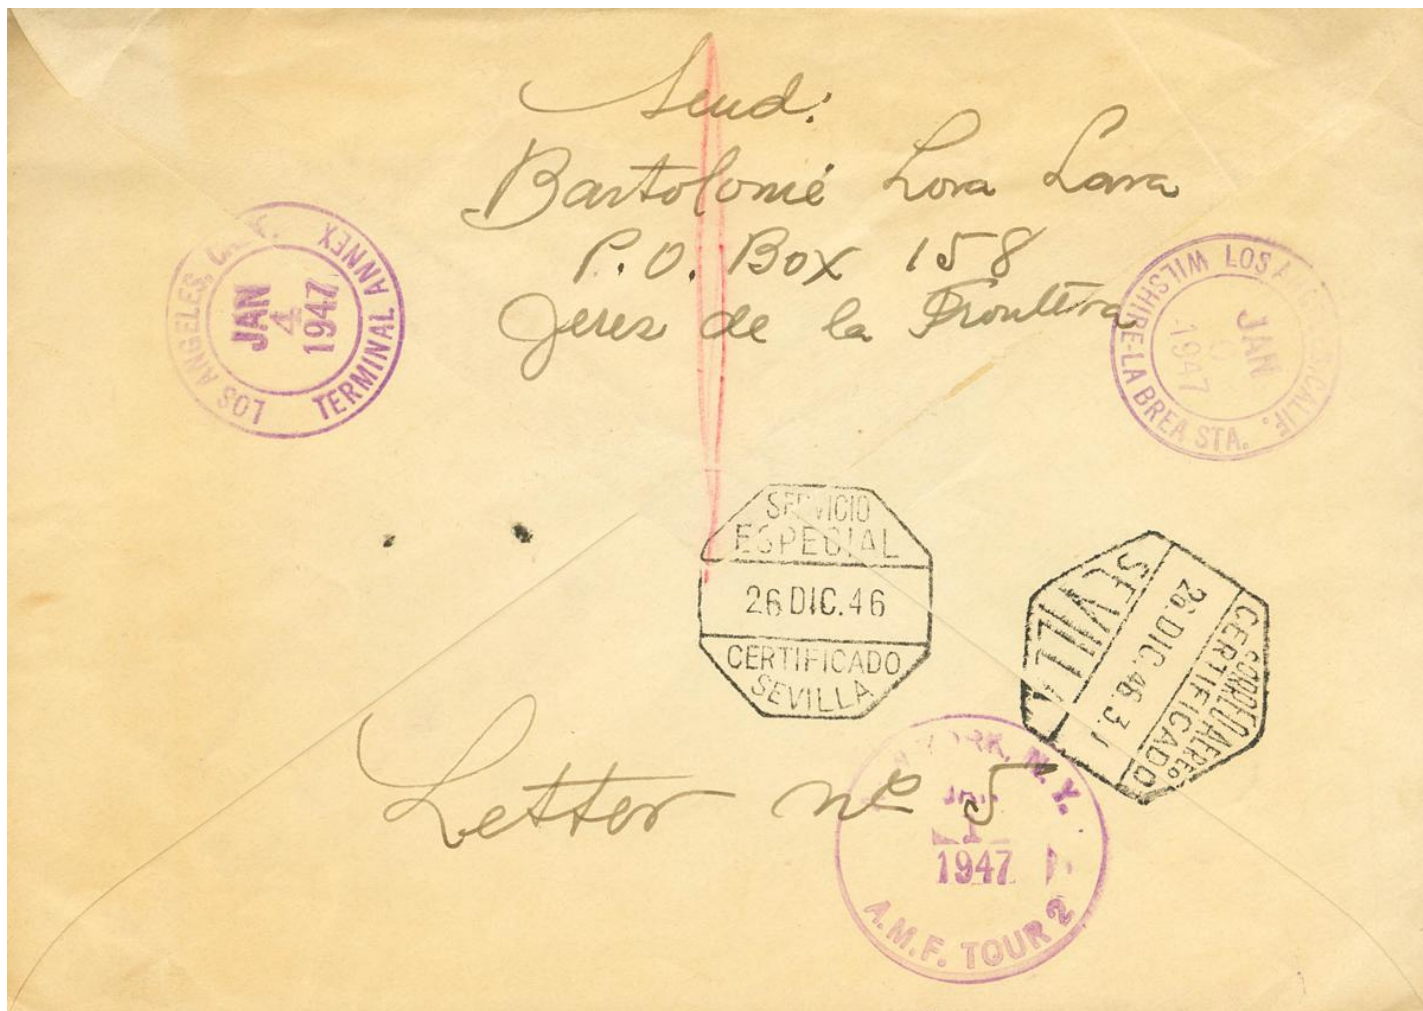 Send:
Bartolomé Lora Lara
P.O. Box 158
Jerez de la Frontera
LOS ANGELES,
TERMINAL ANNEX
JAN
4
1947
LOS CALIF.
WILSHIRE-LA BREA STA.
JAN
1947
SERVICIO
ESPECIAL
26 DIC.46
CERTIFICADO
SEVILLA
CORREO AEREO
CERTIFICADO
26.DIC.46.3.
SEVILLA
Letter nº 5
YORK, N.Y.
JAN
1
1947
A.M.F. TOUR 2